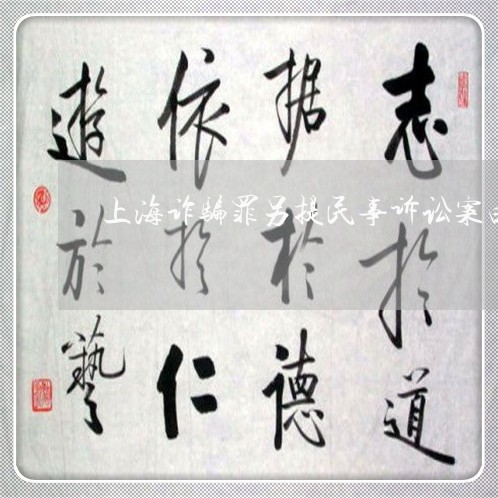 志於道
据於德
依於仁
遊於藝
上海诈骗罪另提民事诉讼案